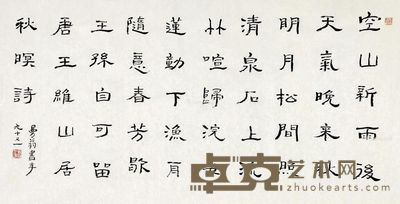 空山新雨後
天氣晚来秋
明月松間照
清泉石上流
竹喧歸浣女
蓮動下漁舟
隨意春芳歇
王孫自可留
唐王維山居
秋暝詩
曼翁書年
九十又一
艺术网
zhuokearts.com